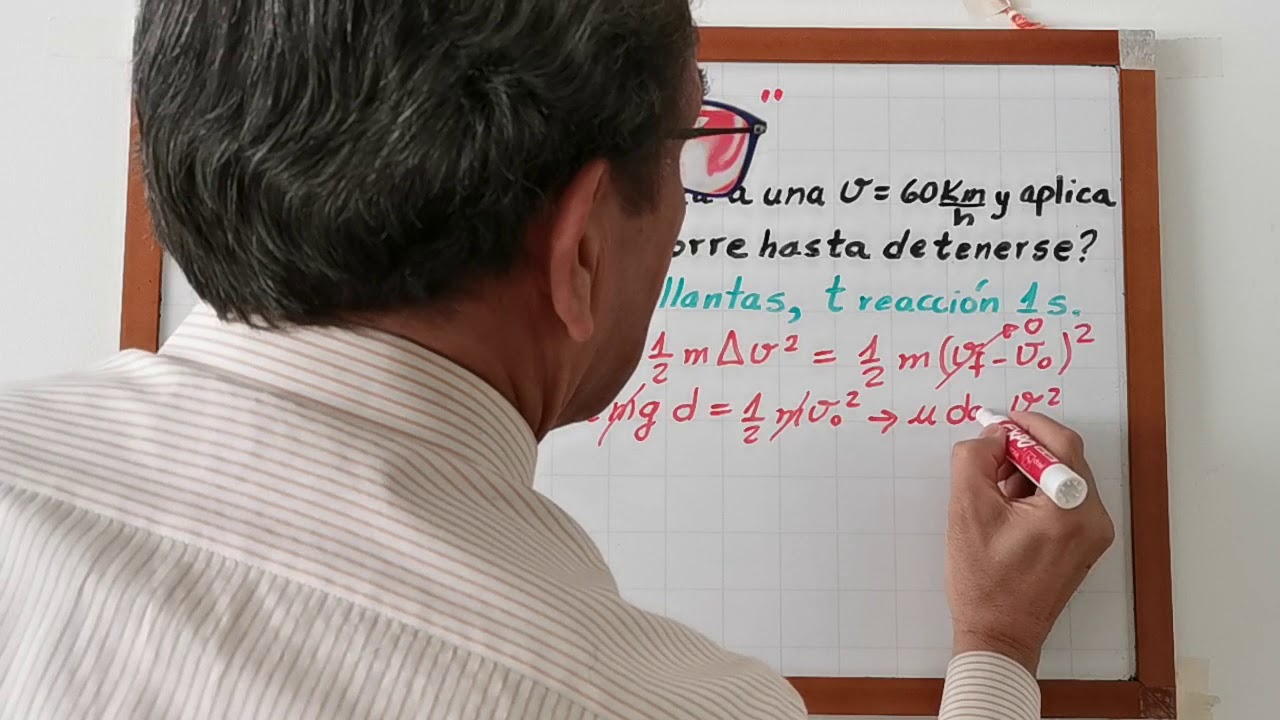 "
a una v = 60 Km/h y aplica
orre hasta detenerse?
llantas, t reacción 1 s.
1/2 m Δv² = 1/2 m (vf - v₀)² 0
mg d = 1/2 m v₀² → μ d v²
EXPO